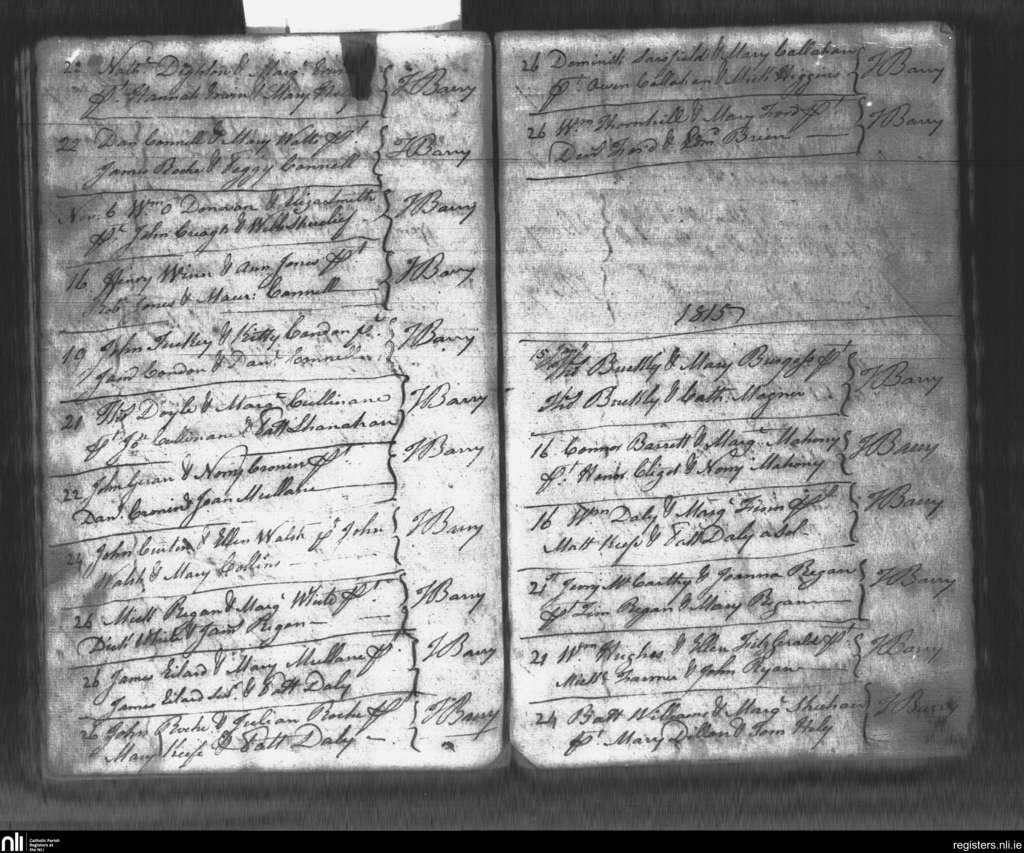 22 Nathl Dighton & Margt
pt Hannah Irwin & Mary
J Barry
22 Dan Connell & Mary Watts pt
James Roche & Peggy Connell
J Barry
Nov. 6 Wm O Donovan & Eliza Smith
pt John Creagh & Willm
J Barry
16 Henry Winn & Ann Jones pt
Robt Jones & Maur: Connell
J Barry
19 John Tuckey & Kitty Condon pt
Jams Condon & Danl Connell
J Barry
21 Thos Doyle & Margt Cullinane
pt Jos Cullinane & Patt Shanahan
J Barry
22 John Guran & Nony Cronin pt
Danl Cronin & Joan Mullane
J Barry
24 John Curtin & Ellen Walsh pt John
Walsh & Mary Collins
J Barry
26 Michl Regan & Margt White pt
Dick White & Jams Regan
J Barry
26 James Eilard & Mary Mullane pt
James Eilard & Patt Daly
J Barry
26 John Roche & Julian Roche pt
Mary Keife & Patt Daly
J Barry
26 Dominick Sarsfield & Mary Callahan
pt Owen Callahan & Mick Higgins
J Barry
26 Wm Thornhill & Mary Ford pt
Davd Ford & Edm Brien
J Barry
1815
15 Thos Buckly & Mary Burgess pt
Thos Buckly & Cath. Magner
J Barry
16 Connor Barrett & Margt Mahony
pt Honor & Nony Mahony
J Barry
16 Wm Daly & Margt pt
Matt Keife & Patt Daly
J Barry
21st Jerry McCarthy & Joanna Regan
pt Tim Regan & Mary Regan
J Barry
21 Wm Hughes & Ellen FitzGerald pt
Michl Farmer & John Ryan
J Barry
24 Batt Williams & Margt Sheehan
pt Mary Dillon & Tom Hely
J Barry
nli Catholic Parish
Registers at
the NLI
registers.nli.ie